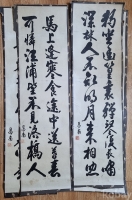 獨坐幽篁裏彈琴復長嘯
深林人不知明月來相照
馬上逢寒食途中送暮春
可憐江浦望不見洛橋人